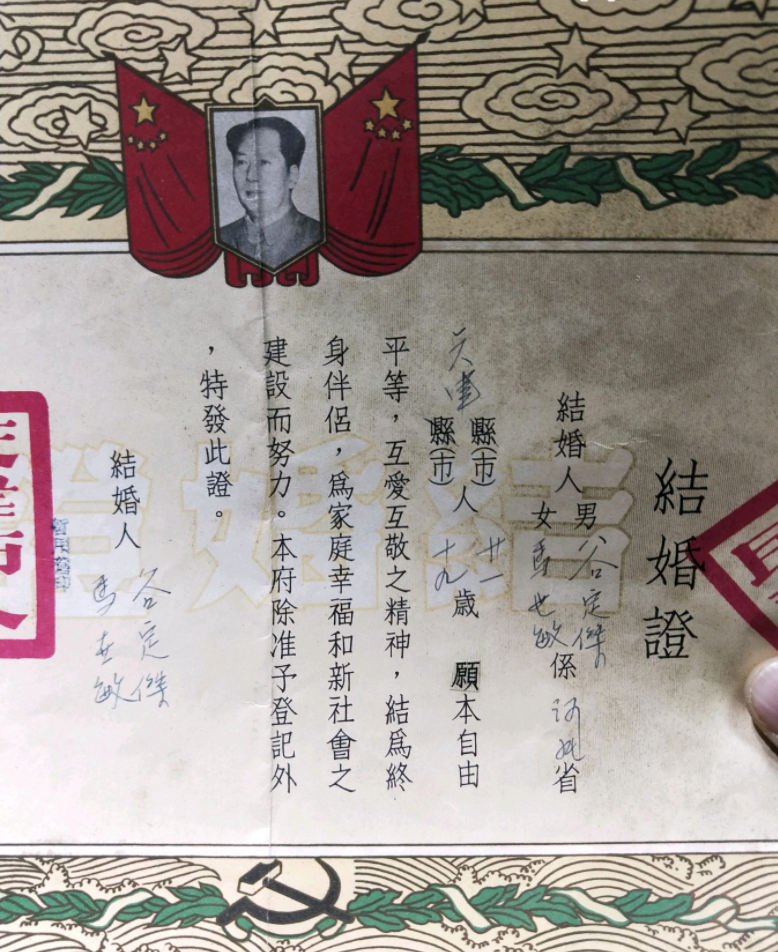 結婚證
結婚人 男 谷定傑
女 馬世敏 係 河北省
縣(市)人 廿一
天津 縣(市) 十九 歲 願本自由
平等，互愛互敬之精神，結爲終
身伴侶，爲家庭幸福和新社會之
建設而努力。本府除准予登記外
，特發此證。
結婚人 谷定傑
馬世敏
結婚證
天津市人